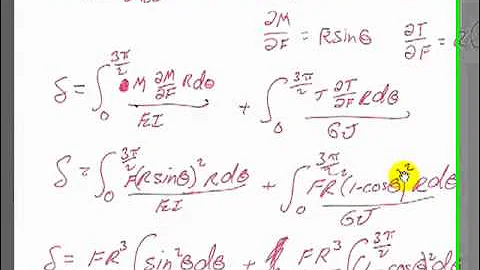 ∂M/∂F = R sinθ ∂T/∂F = R(
δ = ∫₀^(3π/2) M ∂M/∂F R dθ / EI + ∫₀^(3π/2) T ∂T/∂F R dθ / GJ
δ = ∫₀^(3π/2) F(R sinθ)² R dθ / EI + ∫₀^(3π/2) FR²(1-cosθ)² R dθ / GJ
δ = FR³ ∫ sin²θ dθ + FR³ ∫^(3π/2) (1-cosθ)² dθ